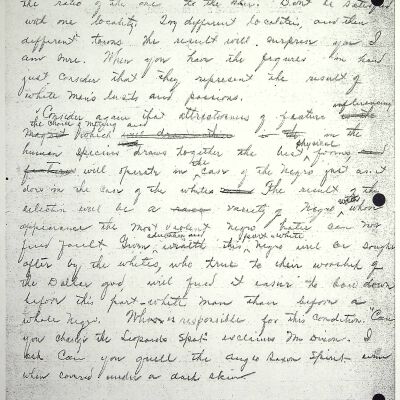 the ratio of the one to the other. Don't be satis
with one locality. Try different localities, and then
different towns the result will surprise you I
am sure. When you have the figures in hand
just consider that they represent the result of
white men's lusts and passions.
Consider again the attractiveness of feature influencing
the choice of mating and
which in the
human species draws together the best physical forms and
will operate in the case of the Negro just as it
does in the case of the whites The result of the
selection will be a variety of Negro with whose
appearance the most violent Negro hater can not
find fault. Given education and wealth this part-white Negro will be sought
after by the whites, who true to their worship of
the Dollar god, will find it easier to bow down
before this part-white man than before a
whole Negro. Who is responsible for this condition. "Can
you change the Leopards Spots" exclaims Mr Dixon. I
ask Can you quell the Anglo Saxon Spirit even
when covered under a dark skin.